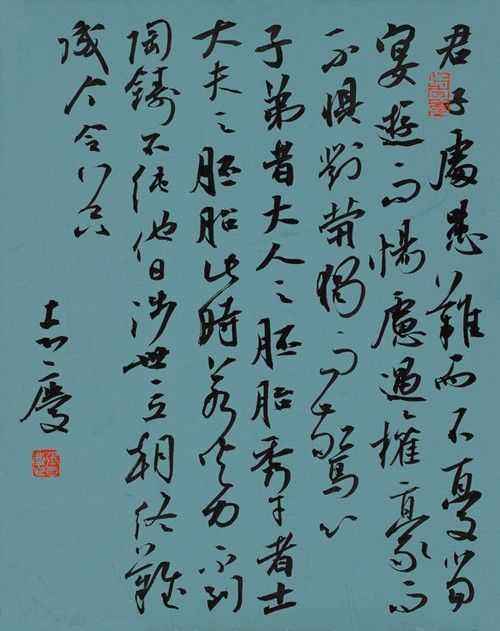 君子處患難而不憂當
宴遊而惕慮遇權豪而
不懼對煢獨而驚心
子弟者大人之胚胎秀才者士
大夫之胚胎此時若火力不到
陶鑄不純他日涉世立朝終難
成个令器
慶